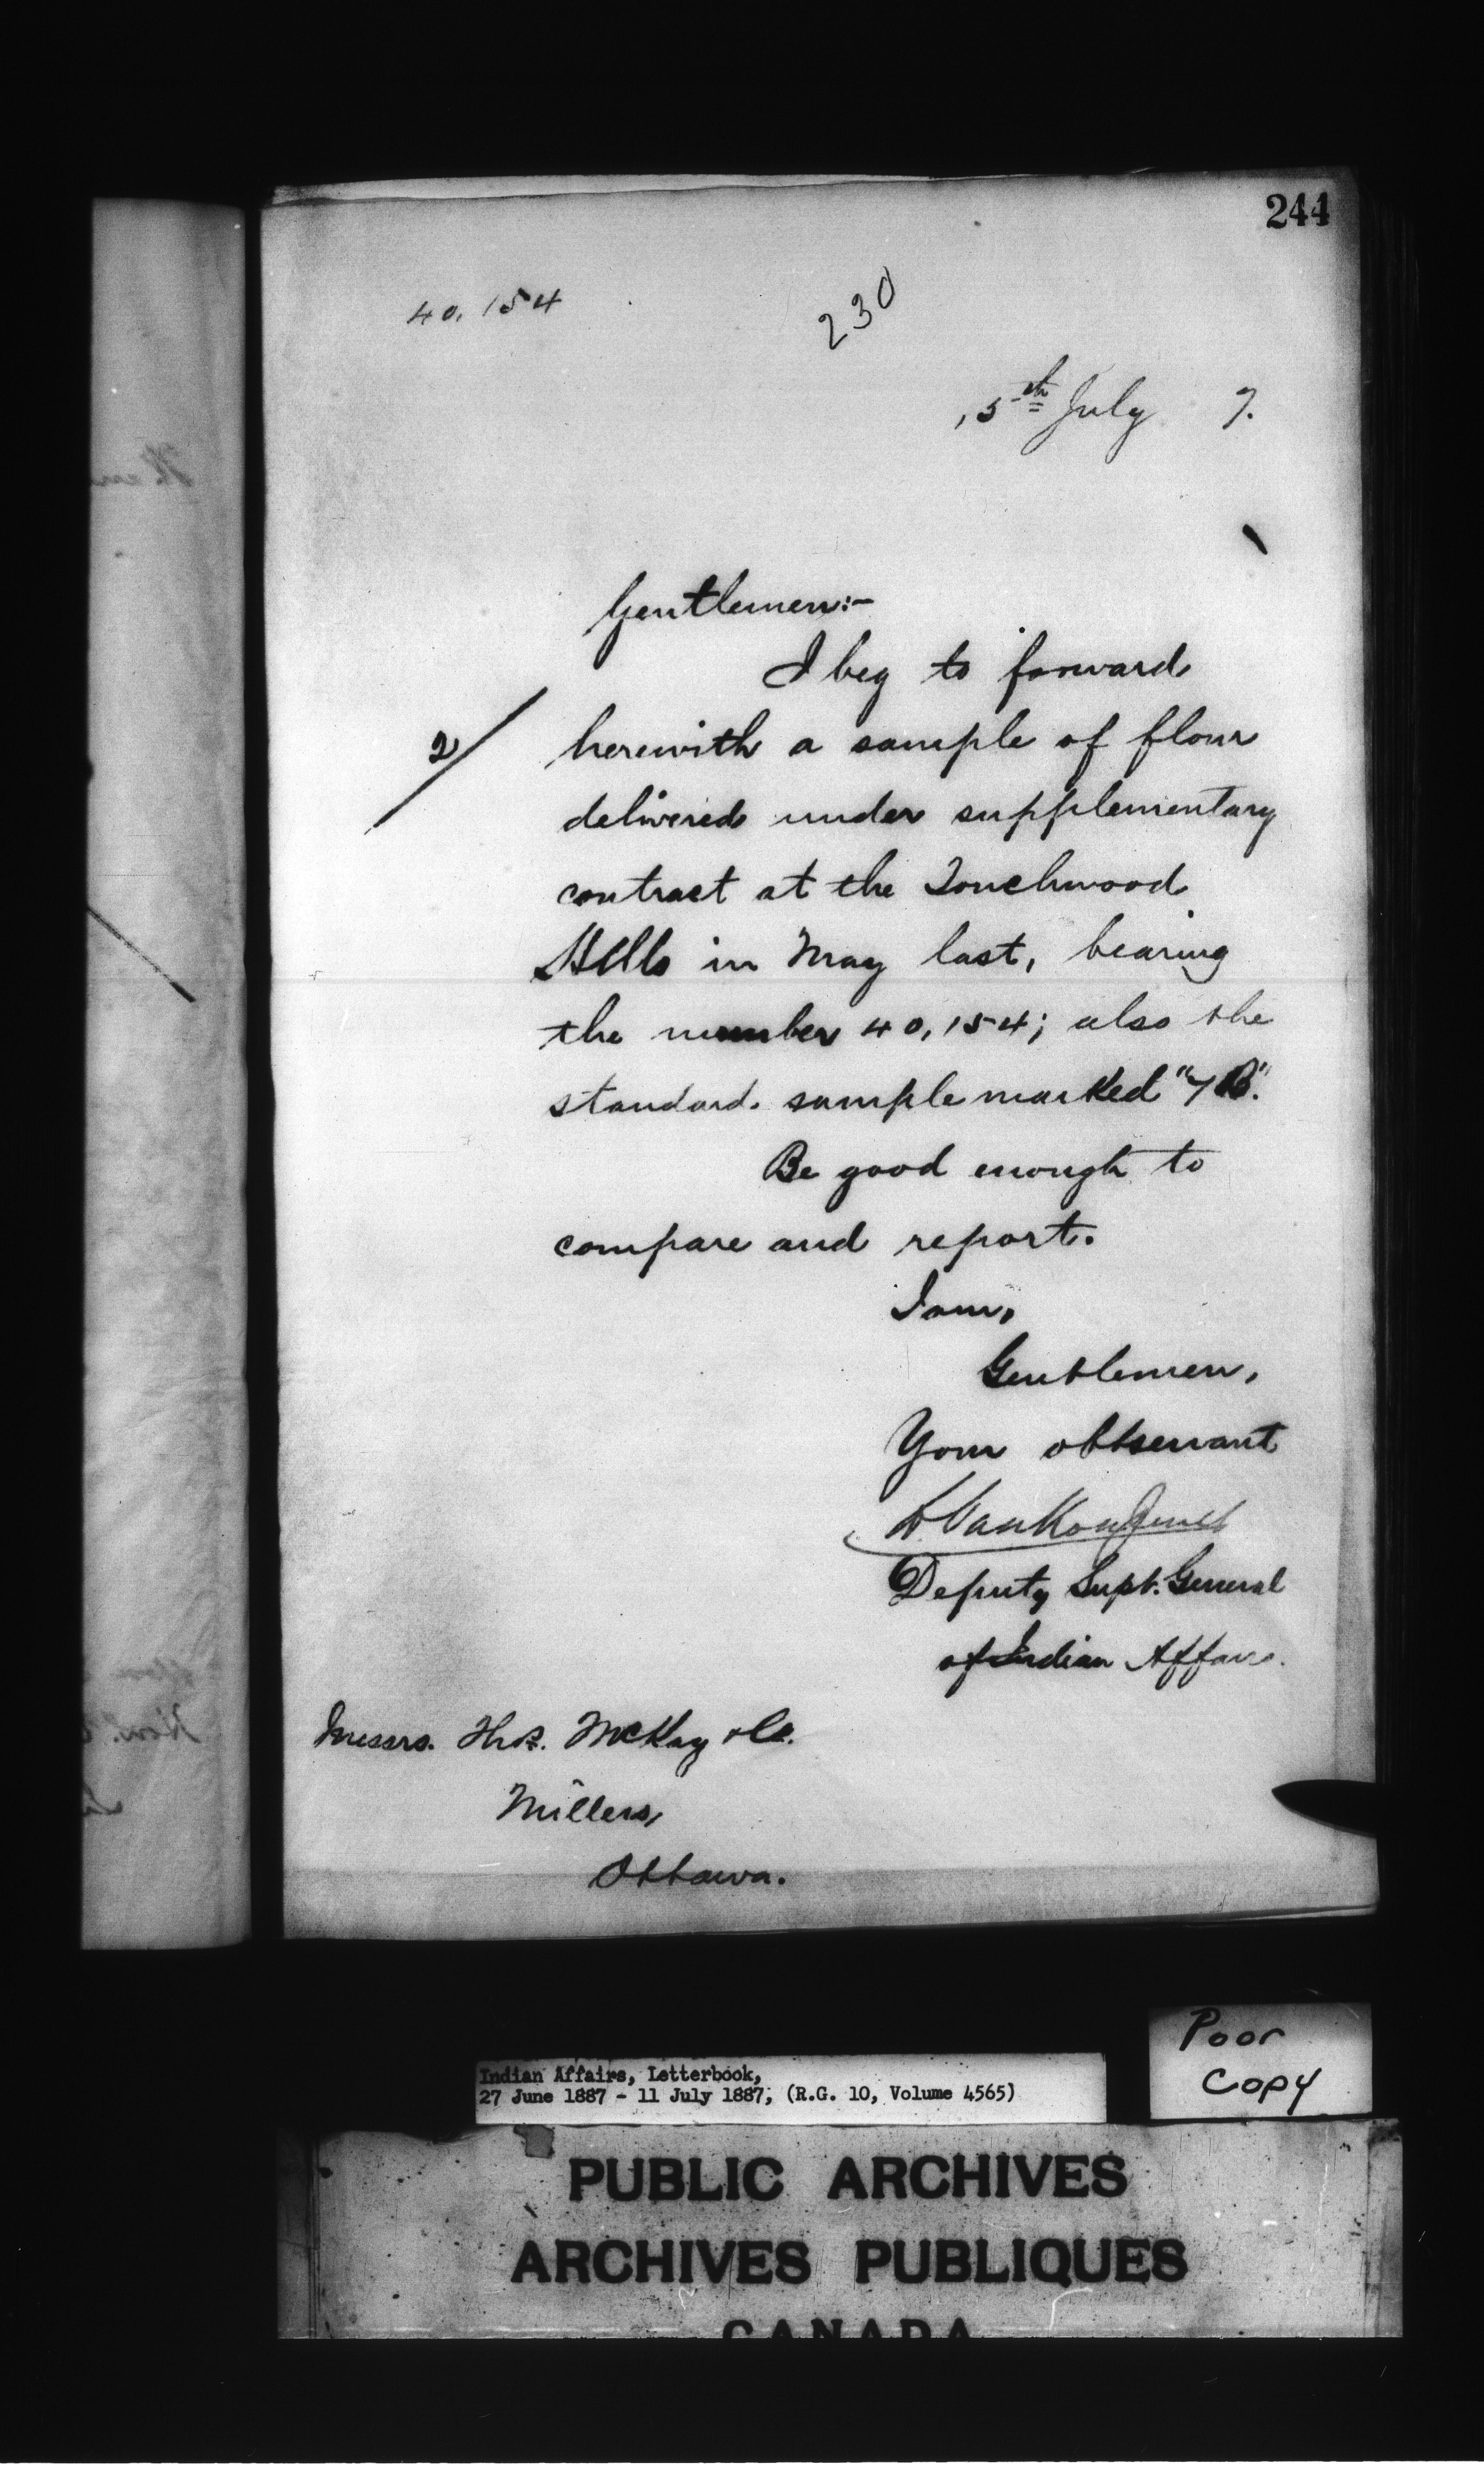 244
40,154
230
5th July 7.
Gentlemen:-
I beg to forward
2/
herewith a sample of flour
delivered under supplementary
contract at the Touchwood
Hills in May last, bearing
the number 40,154; also the
standard. sample marked "7B".
Be good enough to
compare and report.
I am,
Gentlemen,
Your obt servant
L. VanKoughnet
Deputy Supt. General
of Indian Affairs.
Messrs. Thos. McKay & Co.
Millers,
Ottawa.
Poor
Copy
Indian Affairs, Letterbook,
27 June 1887 - 11 July 1887, (R.G. 10, Volume 4565)
PUBLIC ARCHIVES
ARCHIVES PUBLIQUES
CANADA